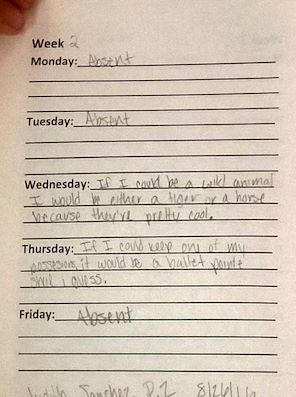 Week 2
Monday: Absent
Tuesday: Absent
Wednesday: If I could be a wild animal
I would be either a tiger or a horse
because they're pretty cool.
Thursday: If I could keep one of my
possesions, it would be a ballet pointe
shoe i guess.
Friday: Absent
Sanchez P.2 8/26/16